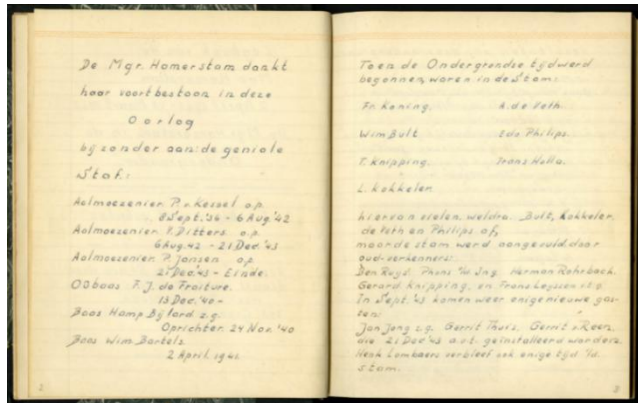 De Mgr. Hamerstam dankt
haar voortbestaan in deze
Oorlog
bijzonder aan: de geniale
Staf:
Aalmoezenier P. v. Kessel o.p.
8 Sept. '36 - 6 Aug. '42
Aalmoezenier P. Ditters o.p.
6 Aug. 42 - 21 Dec. '43
Aalmoezenier P. Jansen o.p.
21 Dec. '43 - Einde.
OObaas F. J. de Fraiture.
13 Dec. '40 -
Baas Hamp Bijlard z.g.
Oprichter. 24 Nov. '40
Baas Wim Bartels
2 April 1941
2
Toen de Ondergrondse tijd werd
begonnen, waren in de Stam:
Fr. Koning. A. de Veth.
Wim Bult Edo Philips.
T. Knipping. Frans Holla.
L. Kokkeler.
hiervan vielen weldra Bult, Kokkeler,
de Veth en Philips af,
maar de stam werd aangevuld door
oud-verkenners:
Herman Rohrbach.
Gerard Knipping, en Frans
In Sept. '43 komen weer enige nieuwe gas-
ten:
Jan Jong z.g. Gerrit Thuis. Gerrit v. Reen
die 21 Dec '43 a.v.t. geïnstalleerd worden.
Henk Lombaers verbleef ook enige tijd i/d.
stam.
3